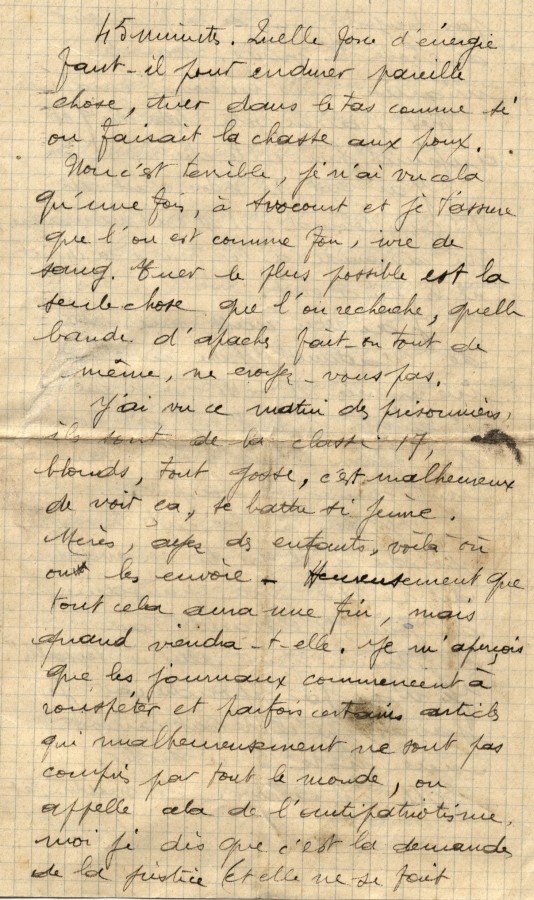 45 minutes. Quelle force d'énergie
faut-il pour endurer pareille
chose, tuer dans le tas comme si
on faisait la chasse aux poux.
Non c'est terrible, je n'ai vu cela
qu'une fois, à Avocourt et je t'assure
que l'on est comme fou, ivre de
sang. Tuer le plus possible est la
seule chose que l'on recherche, quelle
bande d'apaches fait-on tout de
même, ne croyez-vous pas.
J'ai vu ce matin des prisonniers,
ils sont de la classe 17,
blonds, tout gosse, c'est malheureux
de voir ça, se battre si jeune.
Mères, ayez des enfants, voilà où
on les envoie - Heureusement que
tout cela aura une fin, mais
quand viendra-t-elle. Je m'aperçois
que les journaux commencent à
rouspéter et parfois certains articles
qui malheureusement ne sont pas
compris par tout le monde, on
appelle cela de l'antipatriotisme,
moi je dis que c'est la demande
de la justice (et elle ne se fait